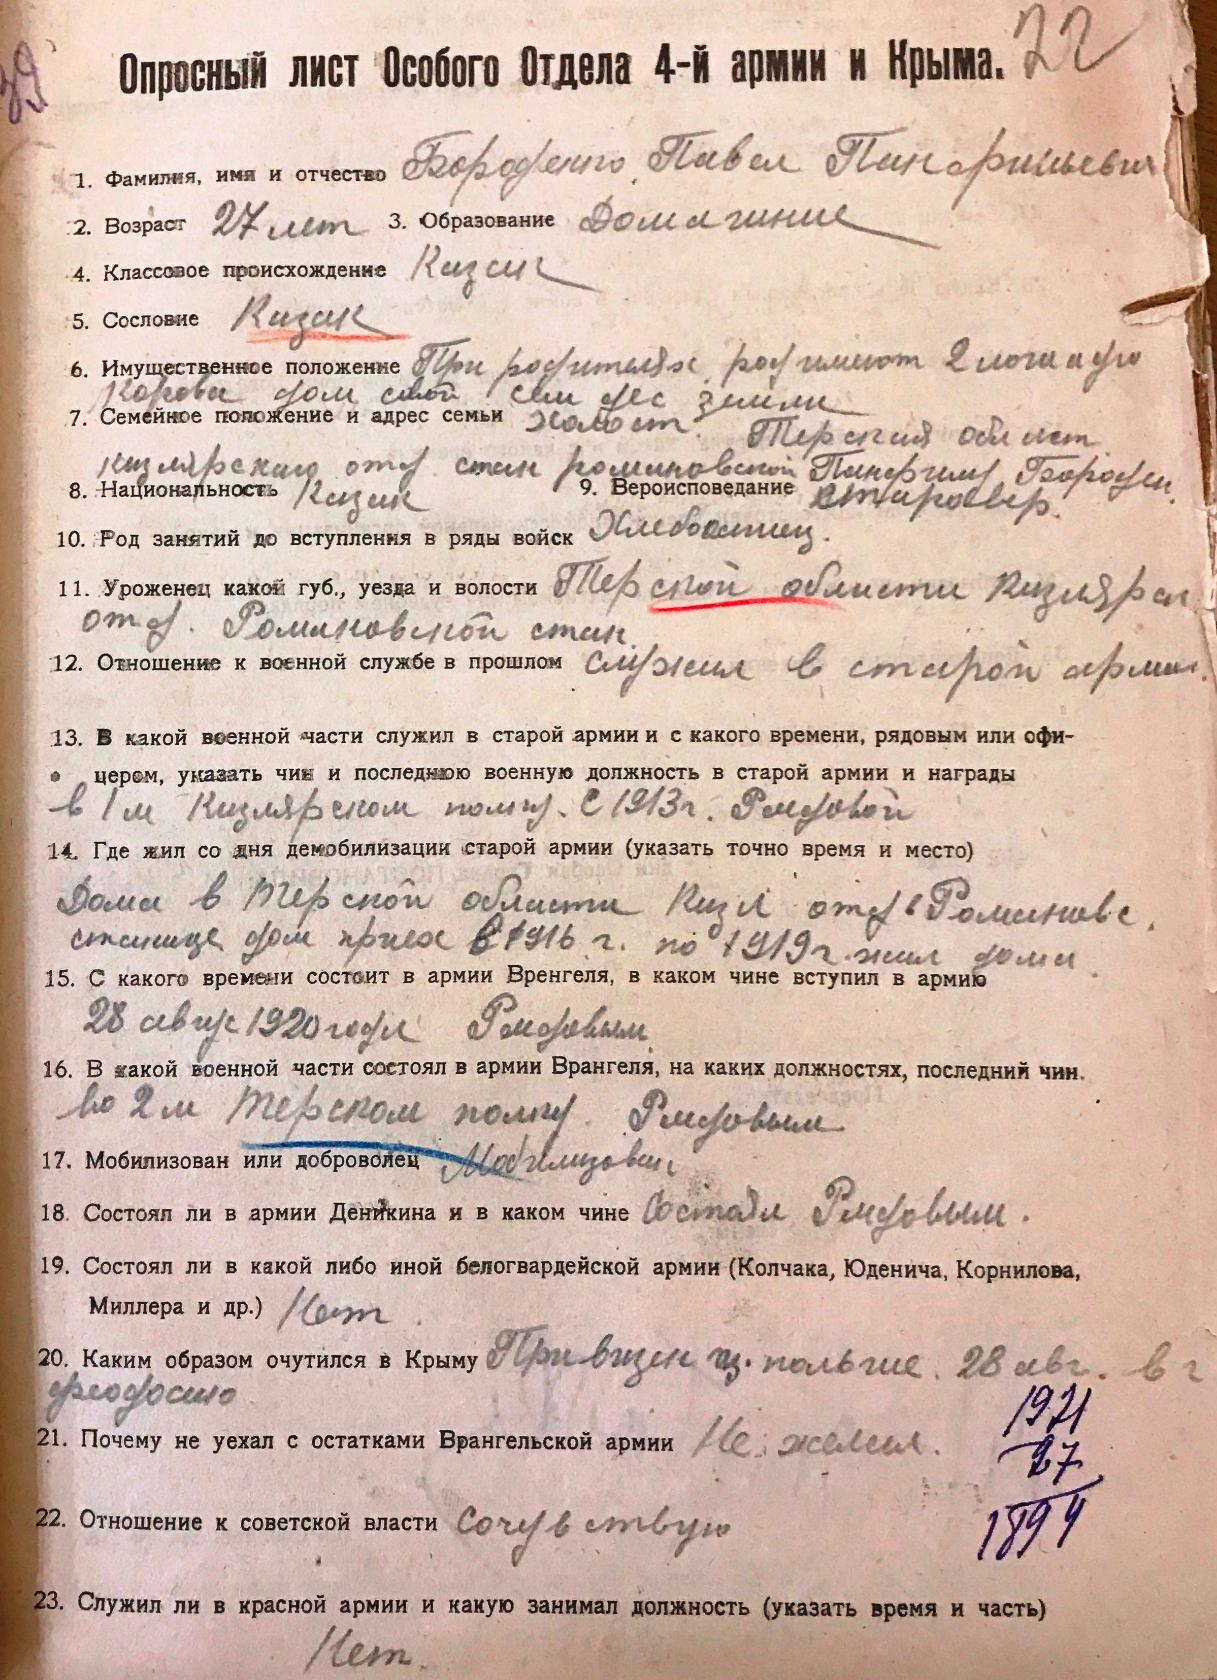 39
Опросный лист Особого Отдела 4-й армии и Крыма. 72
1. Фамилия, имя и отчество Бороденко Павел Панфильевич
2. Возраст 27 лет 3. Образование Домашние
4. Классовое происхождение Казак
5. Сословие Казак
6. Имущественное положение При родителях, род имеют 2 лошади
Корова дом свой сем дес земли
7. Семейное положение и адрес семьи Холост. Терская област
кизлярского отд. стан романовской Панфилу Бороден.
8. Национальность Казак 9. Вероисповедание старовер.
10. Род занятий до вступления в ряды войск Хлебопашец.
11. Уроженец какой губ., уезда и волости Терской области Кизлярск
отд. Романовской стан.
12. Отношение к военной службе в прошлом служил в старой армии.
13. В какой военной части служил в старой армии и с какого времени, рядовым или офи-
цером, указать чин и последнюю военную должность в старой армии и награды
в 1м Кизлярском полку. С 1913г. Рядовой
14. Где жил со дня демобилизации старой армии (указать точно время и место)
Дома в Терской области Кизл отд в Романовс.
станице дом приех в 1916 г. по 1919г. жил дома.
15. С какого времени состоит в армии Вренгеля, в каком чине вступил в армию
28 авгус 1920 года Рядовым
16. В какой военной части состоял в армии Врангеля, на каких должностях, последний чин.
во 2м Терском полку. Рядовым
17. Мобилизован или доброволец Мобилизован
18. Состоял ли в армии Деникина и в каком чине Состоял Рядовым.
19. Состоял ли в какой либо иной белогвардейской армии (Колчака, Юденича, Корнилова,
Миллера и др.) Нет.
20. Каким образом очутился в Крыму Привизен из. польшие. 28 авг. в г
феодосию
21. Почему не уехал с остатками Врангельской армии Не желал.
1921
27
1894
22. Отношение к советской власти Сочувствую
23. Служил ли в красной армии и какую занимал должность (указать время и часть)
Нет.